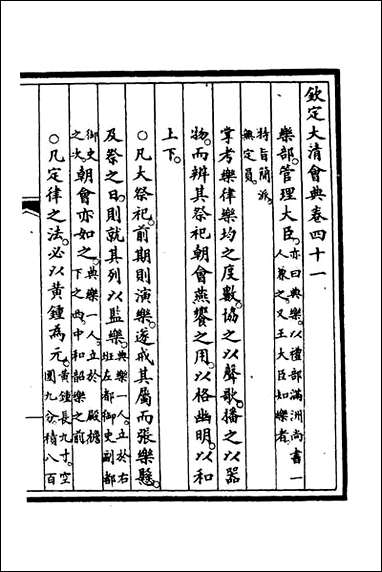 欽定大清會典卷四十一
樂部管理大臣。亦曰典樂。以禮部滿洲尚書一
人兼之。又王大臣知樂者。
特旨簡派。
無定員。
掌考樂律樂均之度數。協之以聲歌。播之以器
物。而辨其祭祀朝會燕饗之用。以格幽明。以和
上下。
○凡大祭祀。前期則演樂。遂戒其屬而張樂懸。
及祭之日。則就其列以監樂。典樂一人。立於右
班左都御史副都
御史
之次。朝會亦如之。典樂一人。立於殿檐
下之西。中和韶樂之前。
○凡定律之法。必以黃鍾為元。黃鍾長九寸。空
圍九分。積八百